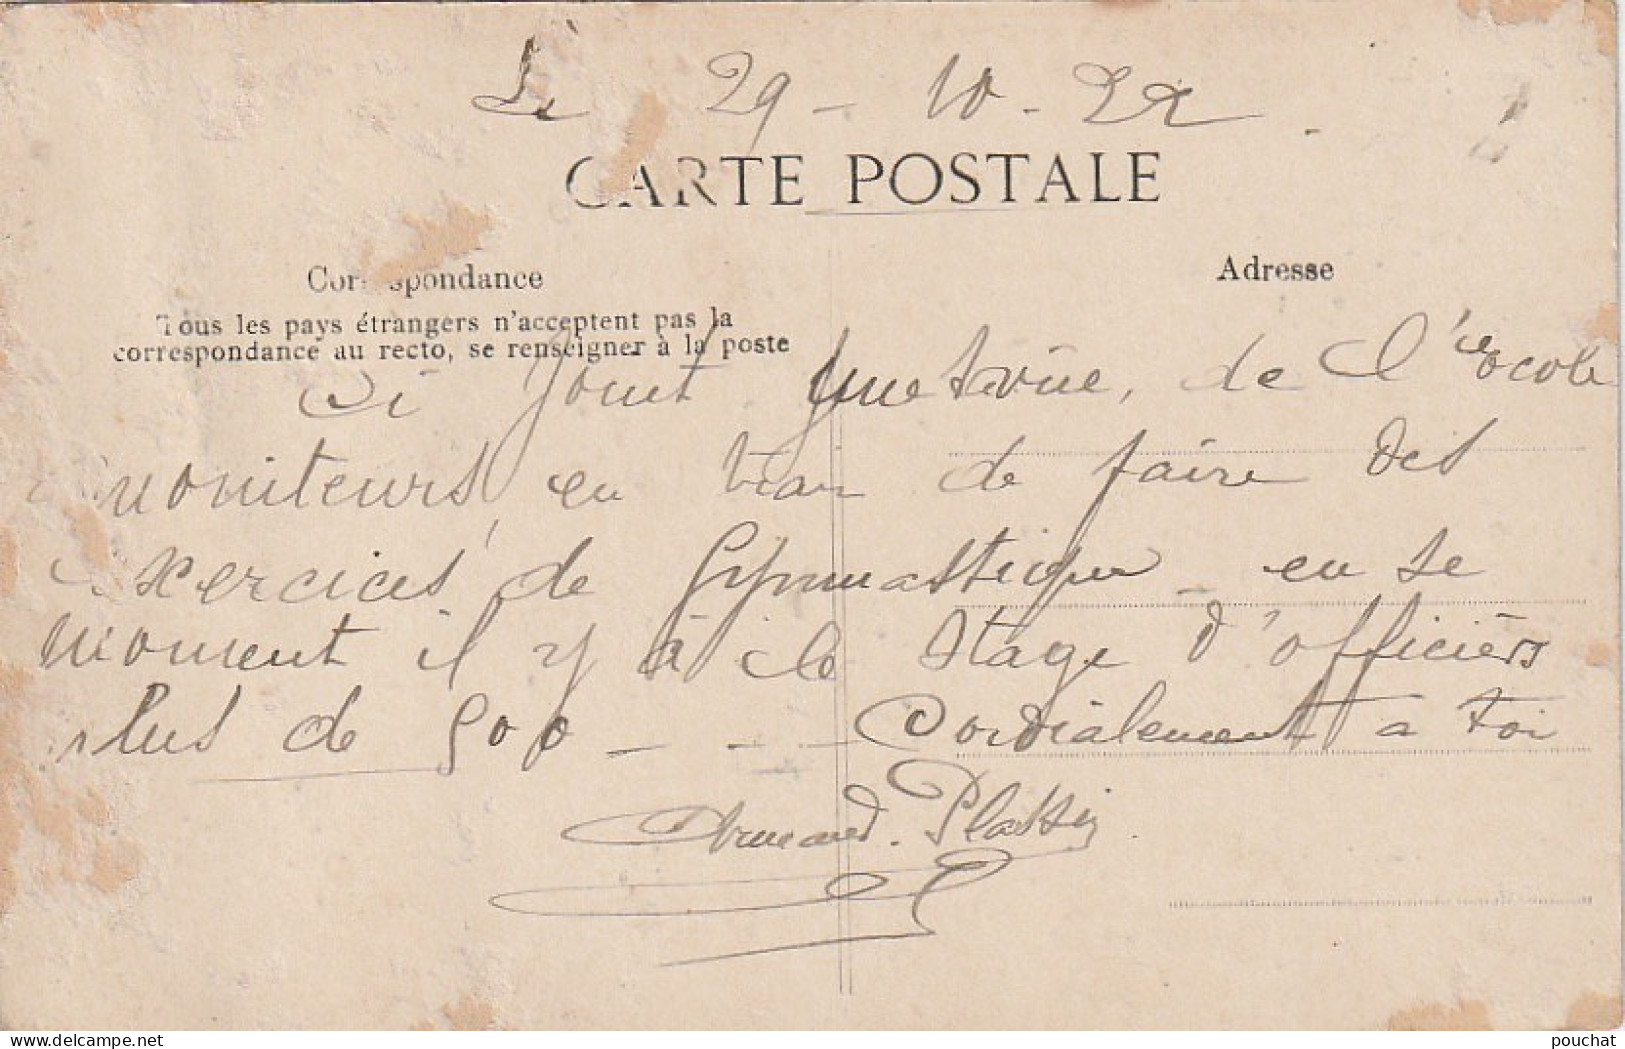 Le 29 - 10 - 22.
CARTE POSTALE
Correspondance
Adresse
Tous les pays étrangers n'acceptent pas la
correspondance au recto, se renseigner à la poste
Ci Jouit une vûe, de l'ecole
moniteurs en train de faire des
exercices de Gymnastique - en se
moment il y à le Stage d'officièrs
plus de 500 - - - Cordialement a toi
Armand. Plassin
pouchat
delcampe.net